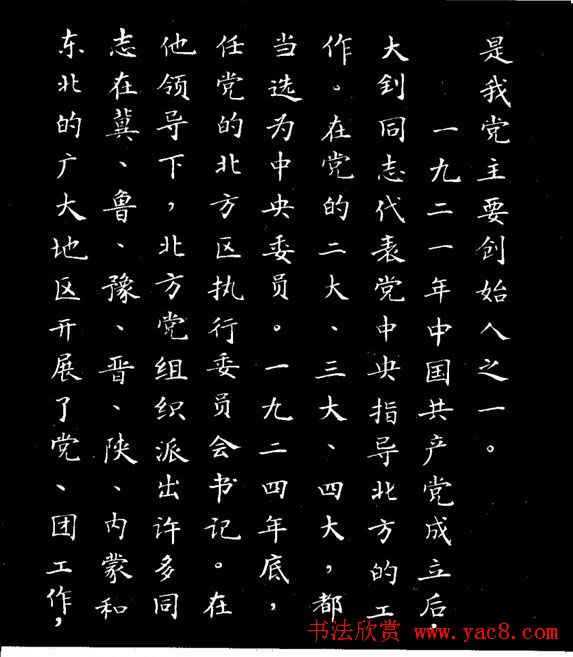 是我党主要创始人之一。
一九二一年中国共产党成立后，
大钊同志代表党中央指导北方的工
作。在党的二大、三大、四大，都
当选为中央委员。一九二四年底，
任党的北方区执行委员会书记。在
他领导下，北方党组织派出许多同
志在冀、鲁、豫、晋、陕、内蒙和
东北的广大地区开展了党、团工作，
书法欣赏 www.yac8.com